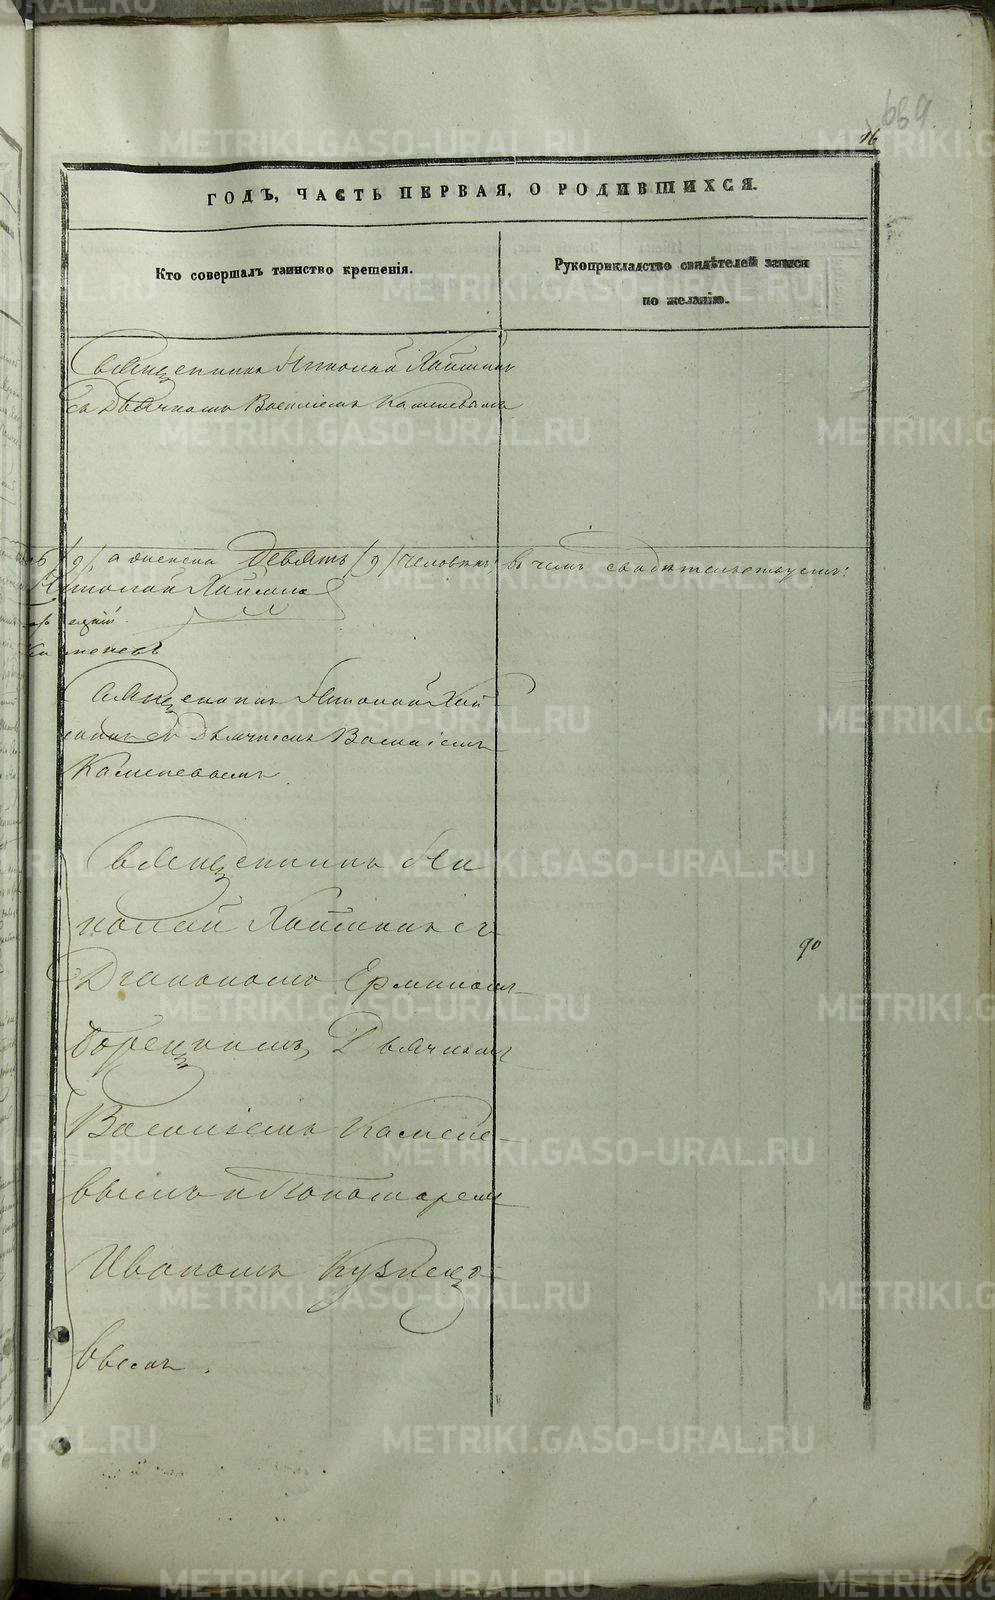 669
16
ГОДЪ, ЧАСТЬ ПЕРВАЯ, О РОДИВШИХСЯ.
Кто совершалъ таинство крещенія.
Рукоприкладство свидѣтелей записи
по желанію.
Священникъ Николай Хайминъ
съ Дьячкомъ Василіемъ Каменевымъ
/9/, а женска Девять /9/ человѣкъ, въ чемъ свидѣтельствуемъ:
Николай Хайминъ
Каменевъ
Священникъ Николай Хай
минъ съ Дьячкомъ Василіемъ
Каменевымъ.
Священникъ Ни
колай Хайминъ съ
Діакономъ Ермиломъ
Борецкимъ, Дьячкомъ
Василіемъ Камене-
вымъ и Понамаремъ
Иваномъ Кузнецо-
вымъ.
90
METRIKI.GASO-URAL.RU